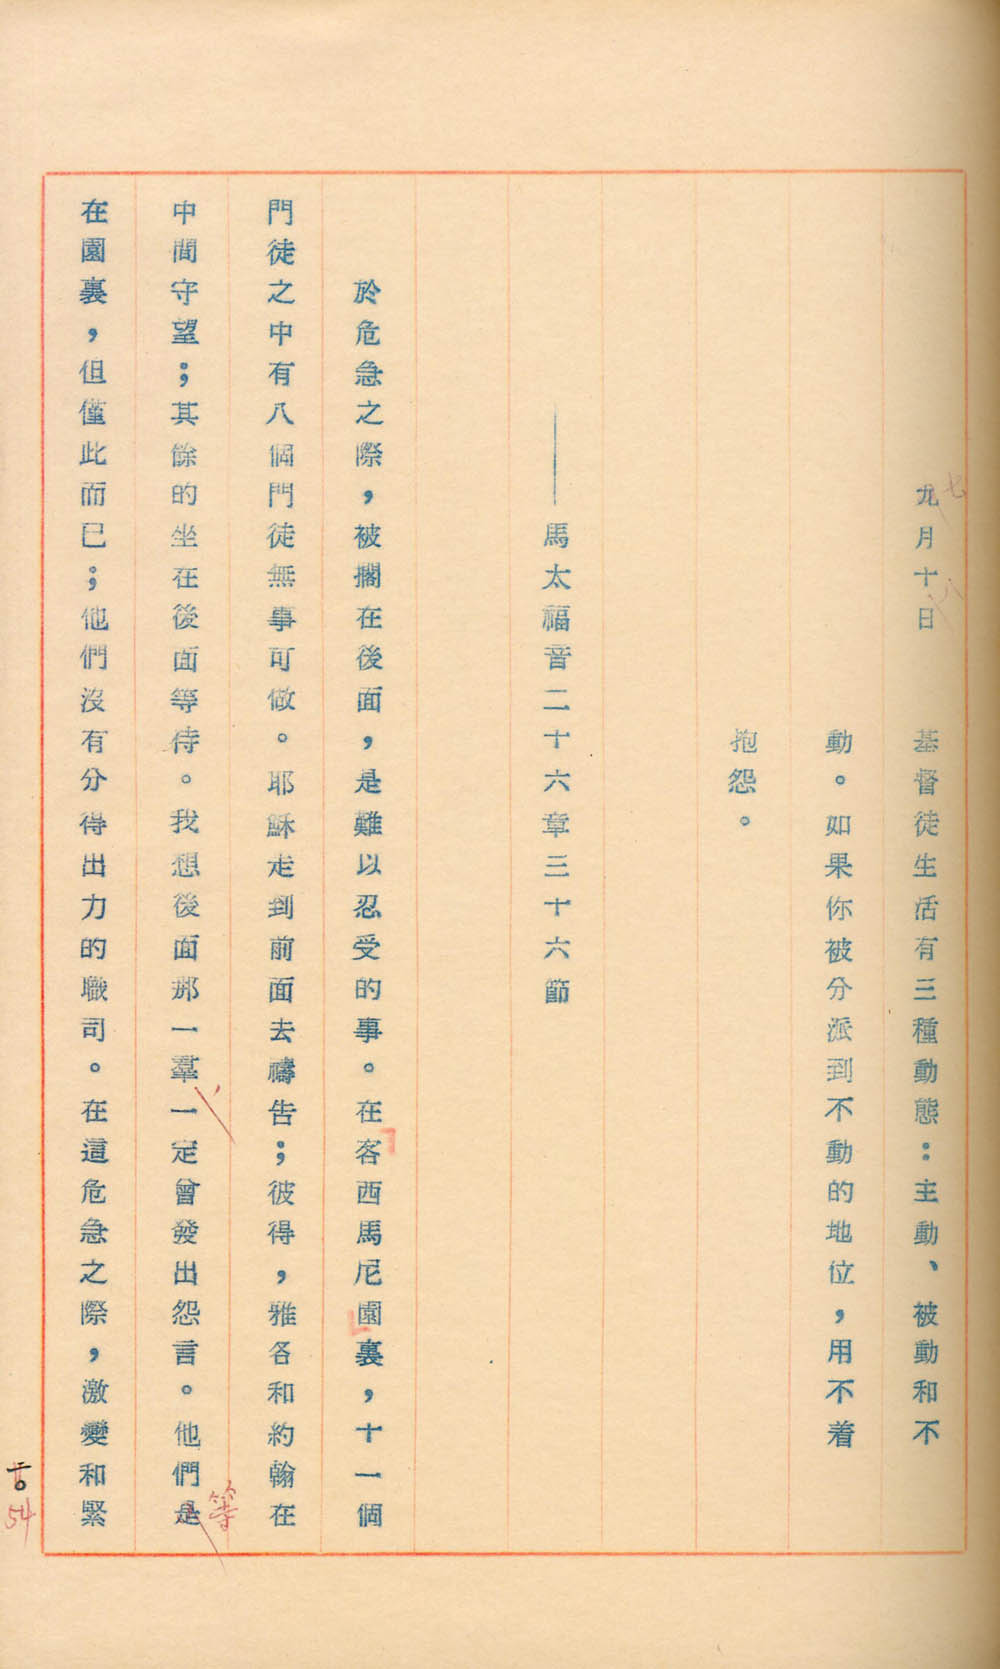 九月十日　基督徒生活有三種動態：主動、被動和不
動。如果你被分派到不動的地位，用不着
抱怨。
——馬太福音二十六章三十六節
於危急之際，被擱在後面，是難以忍受的事。在客西馬尼園裏，十一個
門徒之中有八個門徒無事可做。耶穌走到前面去禱告；彼得，雅各和約翰在
中間守望；其餘的坐在後面等待。我想後面那一羣一定曾發出怨言。他們是
在園裏，但僅此而已；他們沒有分得出力的職司。在這危急之際，激變和緊
七
八
等
54